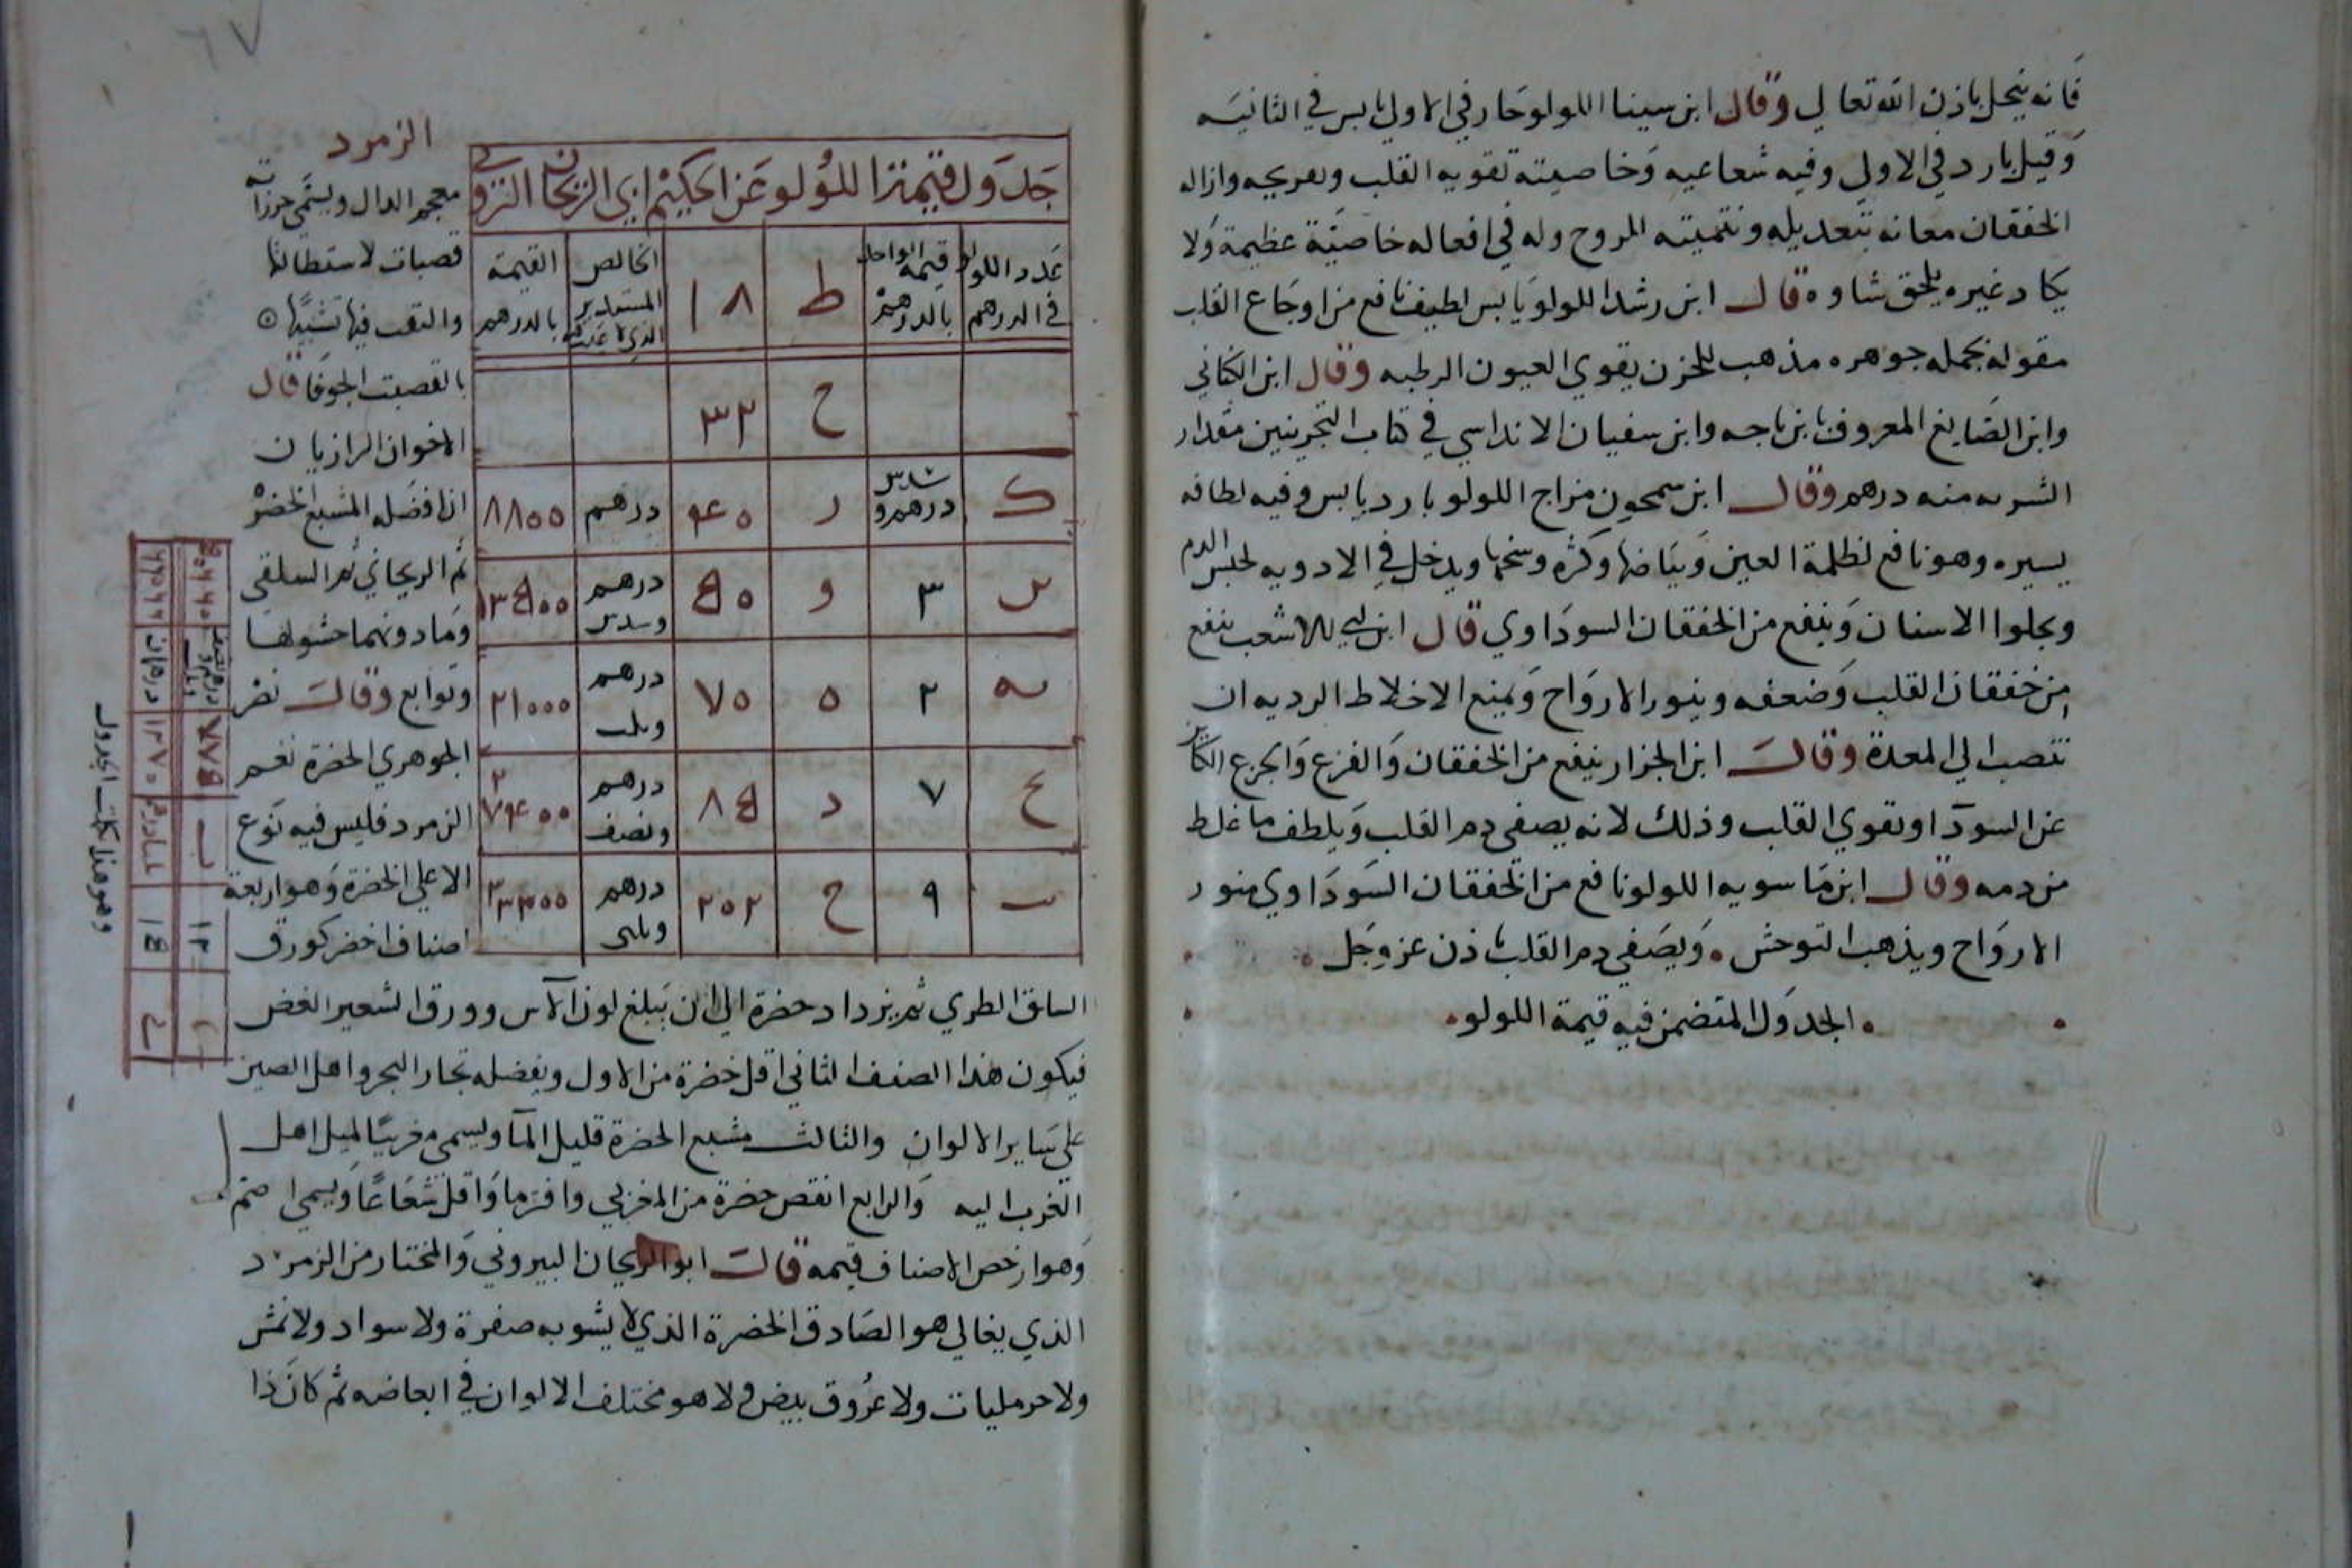 فانه ينحل باذن الله تعالي وقال ابن سينا اللولو حار في الاولي يابس في الثانيه
وقيل بارد في الاولي وفيه شعاعيه وخاصيته تقويه القلب وتفريحه وازاله
الخفقان معانه بتعديله وتمتينه الروح وله في افعاله خاصية عظيمة ولا
يكاد غيره يلحق شاوه قال ابن رشد اللولو يابس لطيف نافع من اوجاع القلب
مقوله بجمله جوهره مذهب للحزن يقوي العيون الرطبه وقال ابن الكتاني
وابن الصايغ المعروف بابن باجه وابن سفيان الانداسي في كتاب التجربتين مقدار
الشربه منه درهم وقال ابن سمحون مزاج اللولو بارد يابس وفيه لطافه
يسيره وهو نافع لظلمة العين وبياضها وكثره وسخها ويدخل في الادويه لحبس الدم
ويجلوا الاسنان وينفع من الخفقان السوداوي قال ابن ابي الاشعب ينفع
من خفقان القلب وضعفه وينور الارواح ويمنع الاخلاط الرديه ان
تنصب الي المعدة وقال ابن الجزار ينفع من الخفقان والفزع والجزع الكاين
عن السودا ويقوي القلب وذلك لانه يصفي دم القلب ويلطف ما غلط
من دمه وقال ابن ماسويه اللولو نافع من الخفقان السوداوي منور
الارواح ويذهب التوحش ويصفي دم القلب باذن عز وجل
الجدول المتضمن فيه قيمة اللولو
٦٧
جدول قيمة اللولو عن الحكيم ابي الريحان
عدد اللولو في الدرهم قيمة الواحد بالدرهم ط ١٨ الخالص المستدير الذي القيمة بالدرهم
ح ٣٢
ك سدس درهم و ر ٤٥ درهم ٨٨٥٥
س ٣ و درهم وسدس
٢ ٥ ٧٥ درهم وثلث ٢١٠٠٠
ع ٧ د درهم ونصف
٩ ح ٢٥٢ درهم
الزمرد
معجم الدال ويسمي
قصبات لاستطالتها
والثقب فيها تشبيها
بالقصبت الجوفا قال
الاخوان الرازيان
ان افضله المشبع الخضرة
ثم الريحاني ثم السلقي
وما دونهما حشو لها
وتوابع وقال نصر
الجوهري الخضرة تعم
الزمرد فليس فيه نوع
الا علي الخضرة وهو اربعة
اصناف اخضر كورق
الساق الطري ثم يزداد حضرة الي ان يبلغ لون الآس وورق الشعير الغض
فيكون هذا الصنف الثاني اقل خضرة من الاول ويفضله تجار البحر واهل الصين
علي ساير الالوان والثالث مشبع الحضرة قليل المآ ويسمي مغربيا لميل اهل
الغرب اليه والرابع انقص حضرة من المغربي واقل شعاعا ويسمي اصم
وهو ارخص الاصناف قيمه قال ابو الريحان البيروني والمختار من الزمرد
الذي يغالي هو الصادق الخضرة الذي لا يشوبه صفرة ولا سواد ولا نمش
ولا حرمليات ولا عروق بيض ولا هو مختلف الالوان في ابعاضه ثم كان ذا
وهو هذا تكملت الجدول